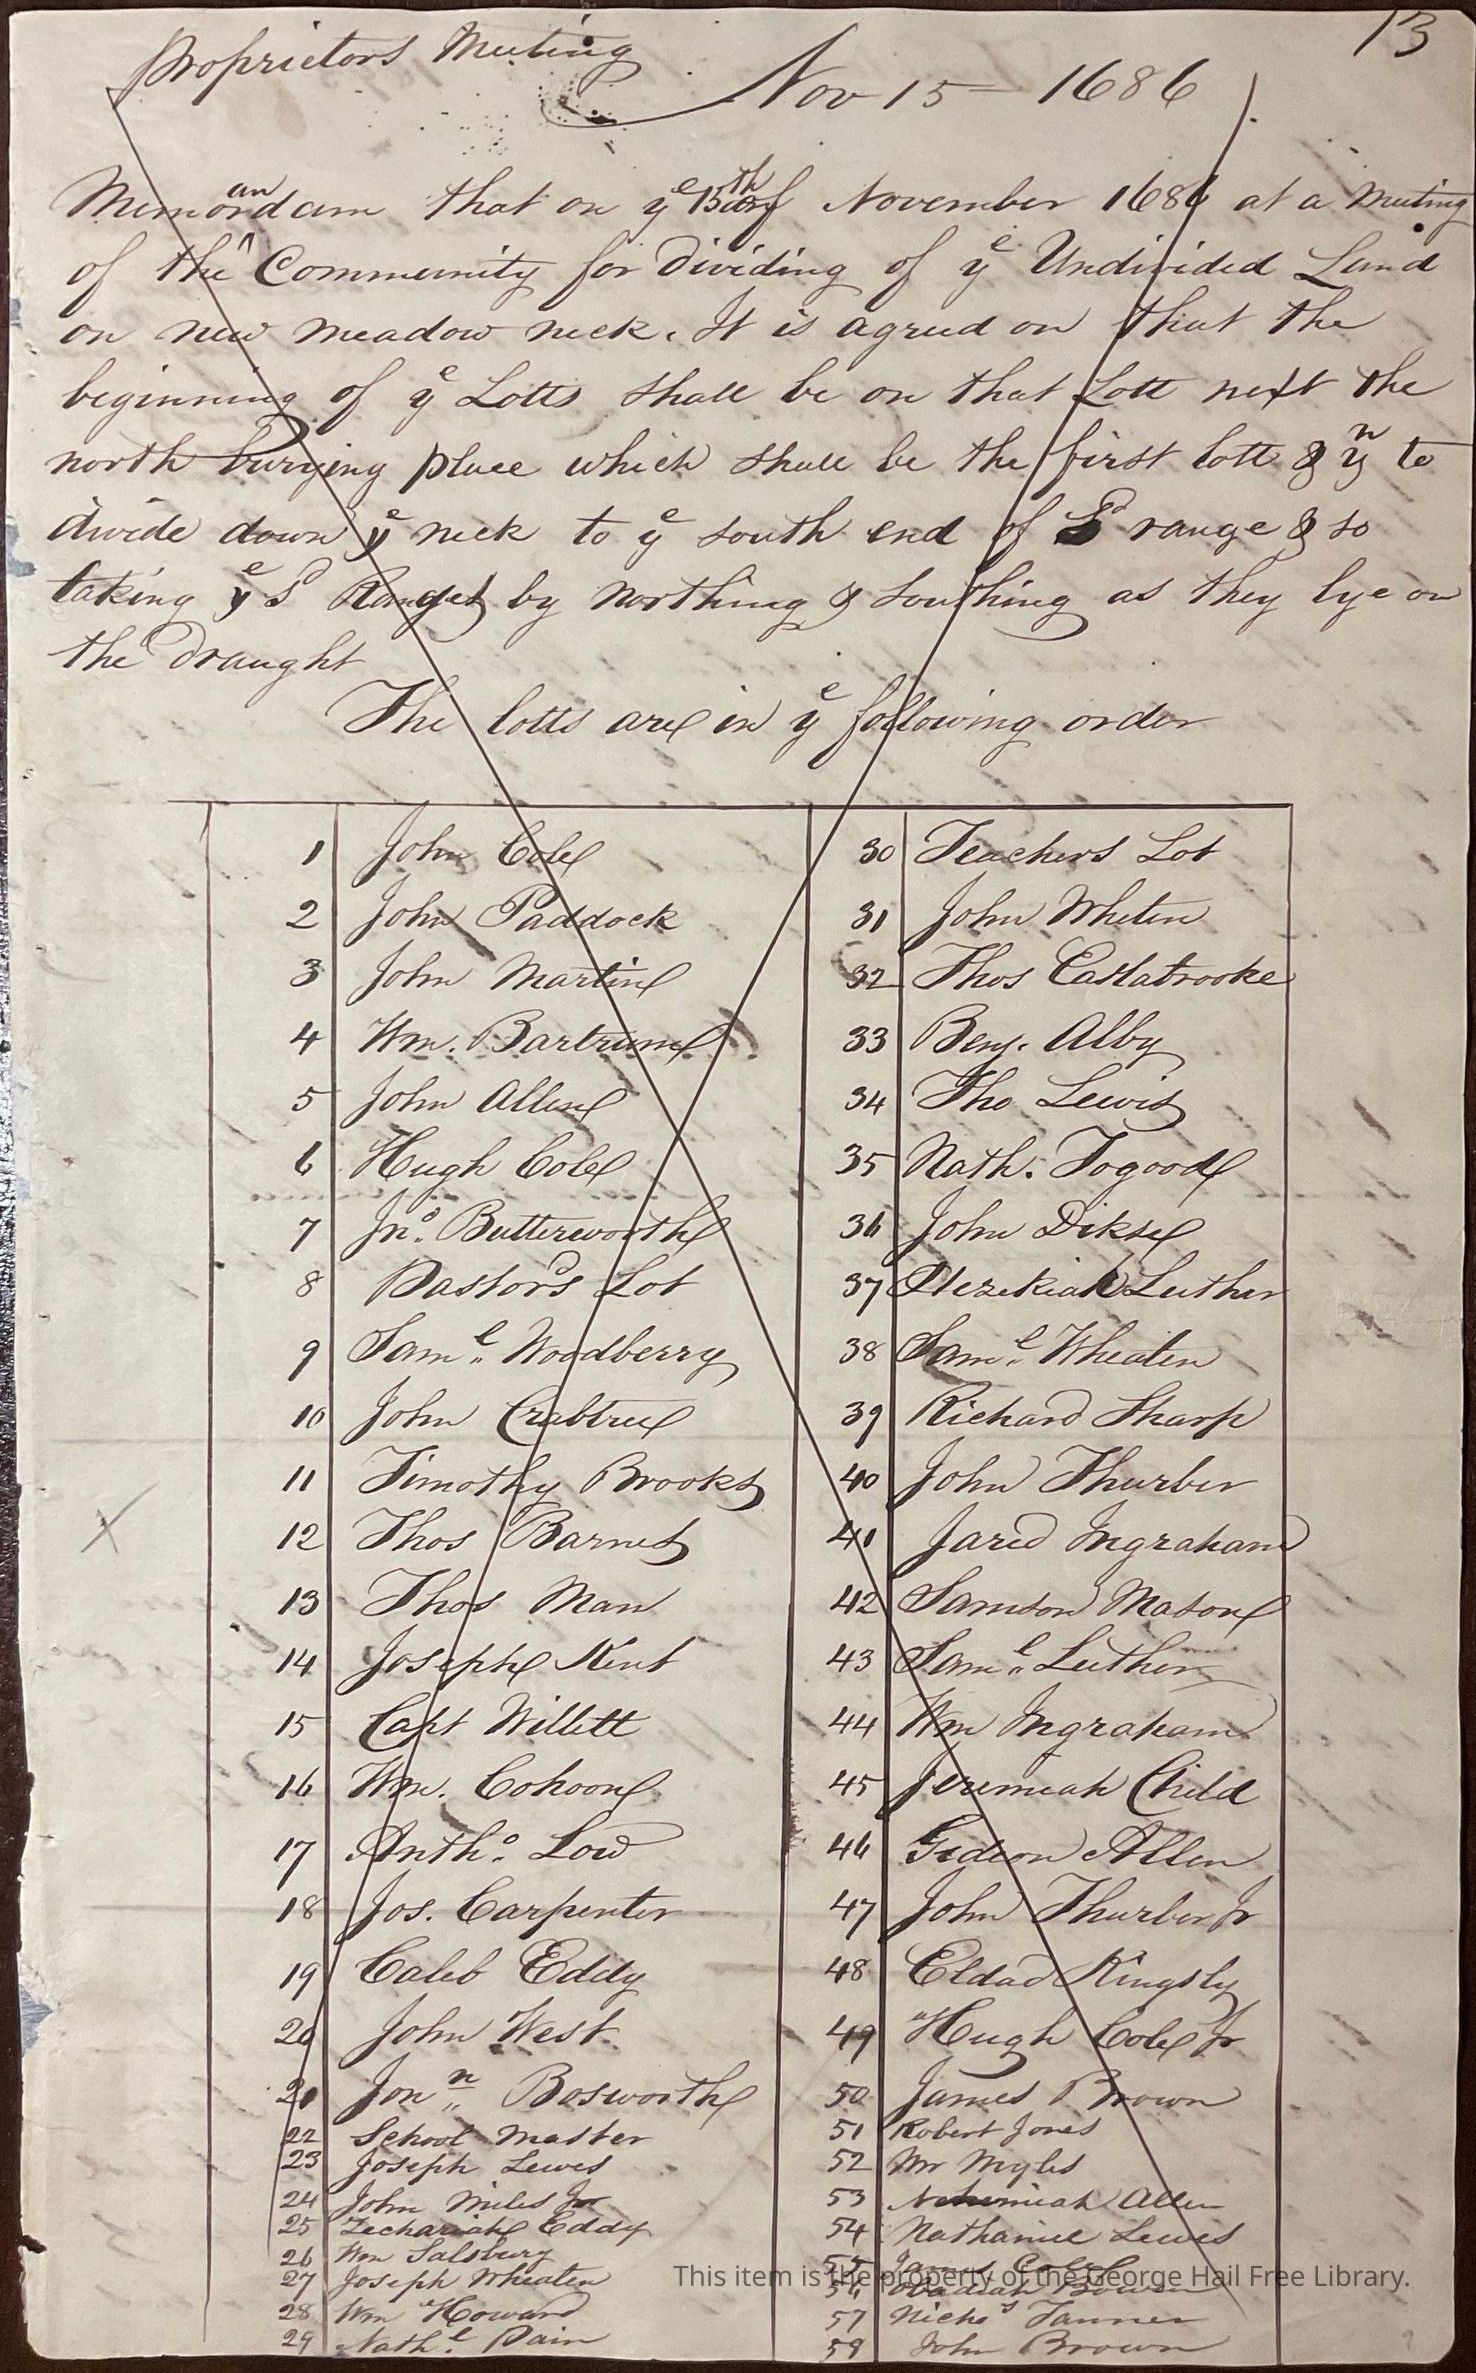 13
Proprietors Meeting
Nov 15 1686
Memorandam that on ye 15th of November 1686 at a Meeting
of the Community for Dividing of ye Undivided Land
on new meadow neck. It is agreed on that the
beginning of ye Lotts shall be on that Lott next the
north burying place which shall be the first lott & yn to
divide down ye neck to ye south end of sd range & so
taking ye sd Ranges by Northing & Southing as they lye on
the Draught
The lotts are in ye following order
1 John Cole
2 John Paddock
3 John Martin
4 Wm. Bartrum
5 John Allen
6 Hugh Cole
7 Jno. Butterworth
8 Pastors Lot
9 Saml. Woodberry
10 John Crabtree
11 Timothy Brooks
12 Thos Barnes
13 Thos Man
14 Joseph Kent
15 Capt Willett
16 Wm. Cohoon
17 Antho. Low
18 Jos. Carpenter
19 Caleb Eddy
20 John West
21 Jonn. Bosworth
22 School Master
23 Joseph Lewes
24 John Miles Jr
25 Zechariah Eddy
26 Wm Salsbury
27 Joseph Wheaten
28 Wm Howard
29 Nathl. Pain
30 Teachers Lot
31 John Wheten
32 Thos Eastabrooke
33 Benj. Alby
34 Tho Lewis
35 Nath. Togood
36 John Dikse
37 Hezekiah Luther
38 Saml. Wheaten
39 Richard Sharp
40 John Thurber
41 Jared Ingraham
42 Samson Mason
43 Saml. Luther
44 Wm Ingraham
45 Jeremiah Child
46 Gideon Allen
47 John Thurber Jr
48 Eldad Kingsly
49 Hugh Cole Jr
50 James Brown
51 Robert Jones
52 Mr Myles
53 Nehemiah Allen
54 Nathaniel Lewes
55 James Cole
56 Obadiah Bowen
57 Nichos Tanner
58 John Brown
This item is the property of the George Hail Free Library.